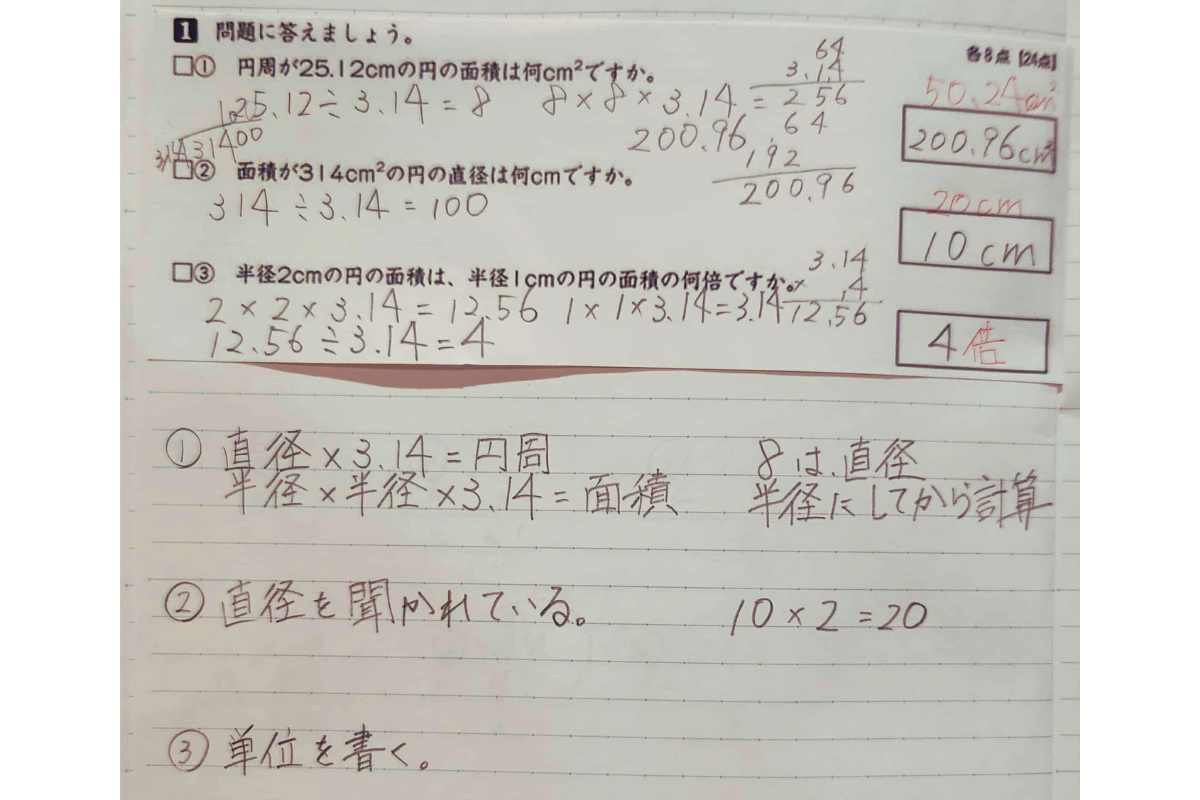 1 問題に答えましょう。
各8点【24点】
□① 円周が25.12cmの円の面積は何cm²ですか。
25.12÷3.14=8 8×8×3.14=
200.96
64
3.14
256
64
192
200.96
50.24cm²
200.96cm²
□② 面積が314cm²の円の直径は何cmですか。
314÷3.14=100
20cm
10cm
□③ 半径2cmの円の面積は、半径1cmの円の面積の何倍ですか。
2×2×3.14=12.56 1×1×3.14=3.14
12.56÷3.14=4
3.14
× 4
12.56
4倍
① 直径×3.14=円周 8は、直径
半径×半径×3.14=面積 半径にしてから計算
② 直径を聞かれている。 10×2=20
③ 単位を書く。